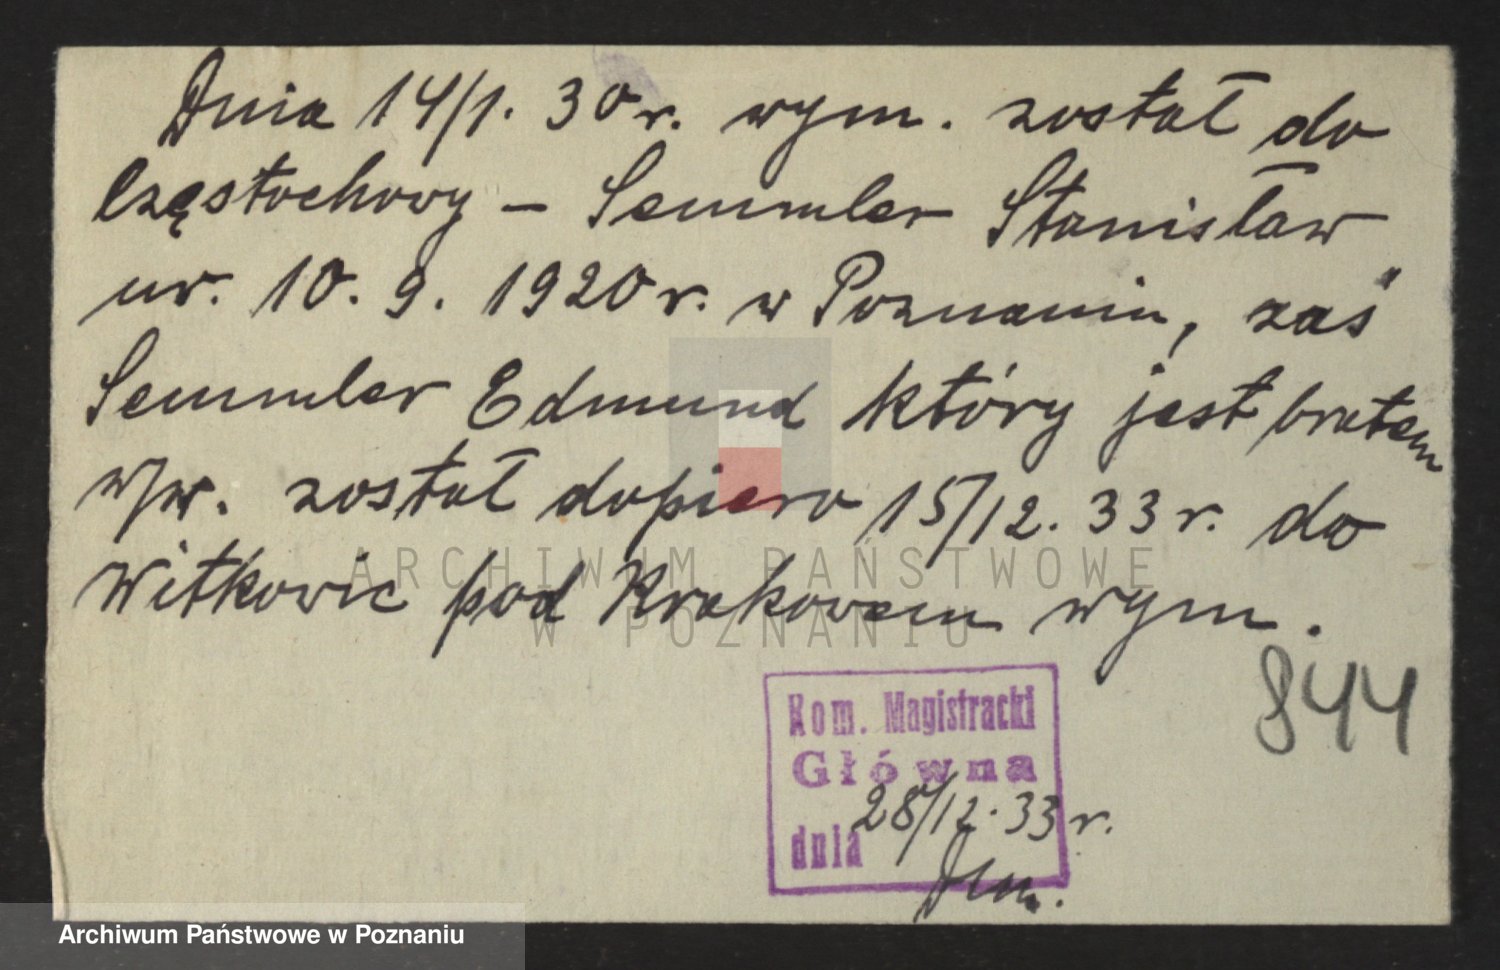 Dnia 14/1. 30 r. wym. został do
Częstochowy – Semmler Stanisław
ur. 10. 9. 1920 r. w Poznaniu, zaś
Semmler Edmund który jest bratem
w/w. został dopiero 15/12. 33 r. do
Witkowic pod Krakowem wym.
844
Kom. Magistracki
Główna
dnia 28/12. 33 r.
ARCHIWUM PAŃSTWOWE
W POZNANIU
Archiwum Państwowe w Poznaniu